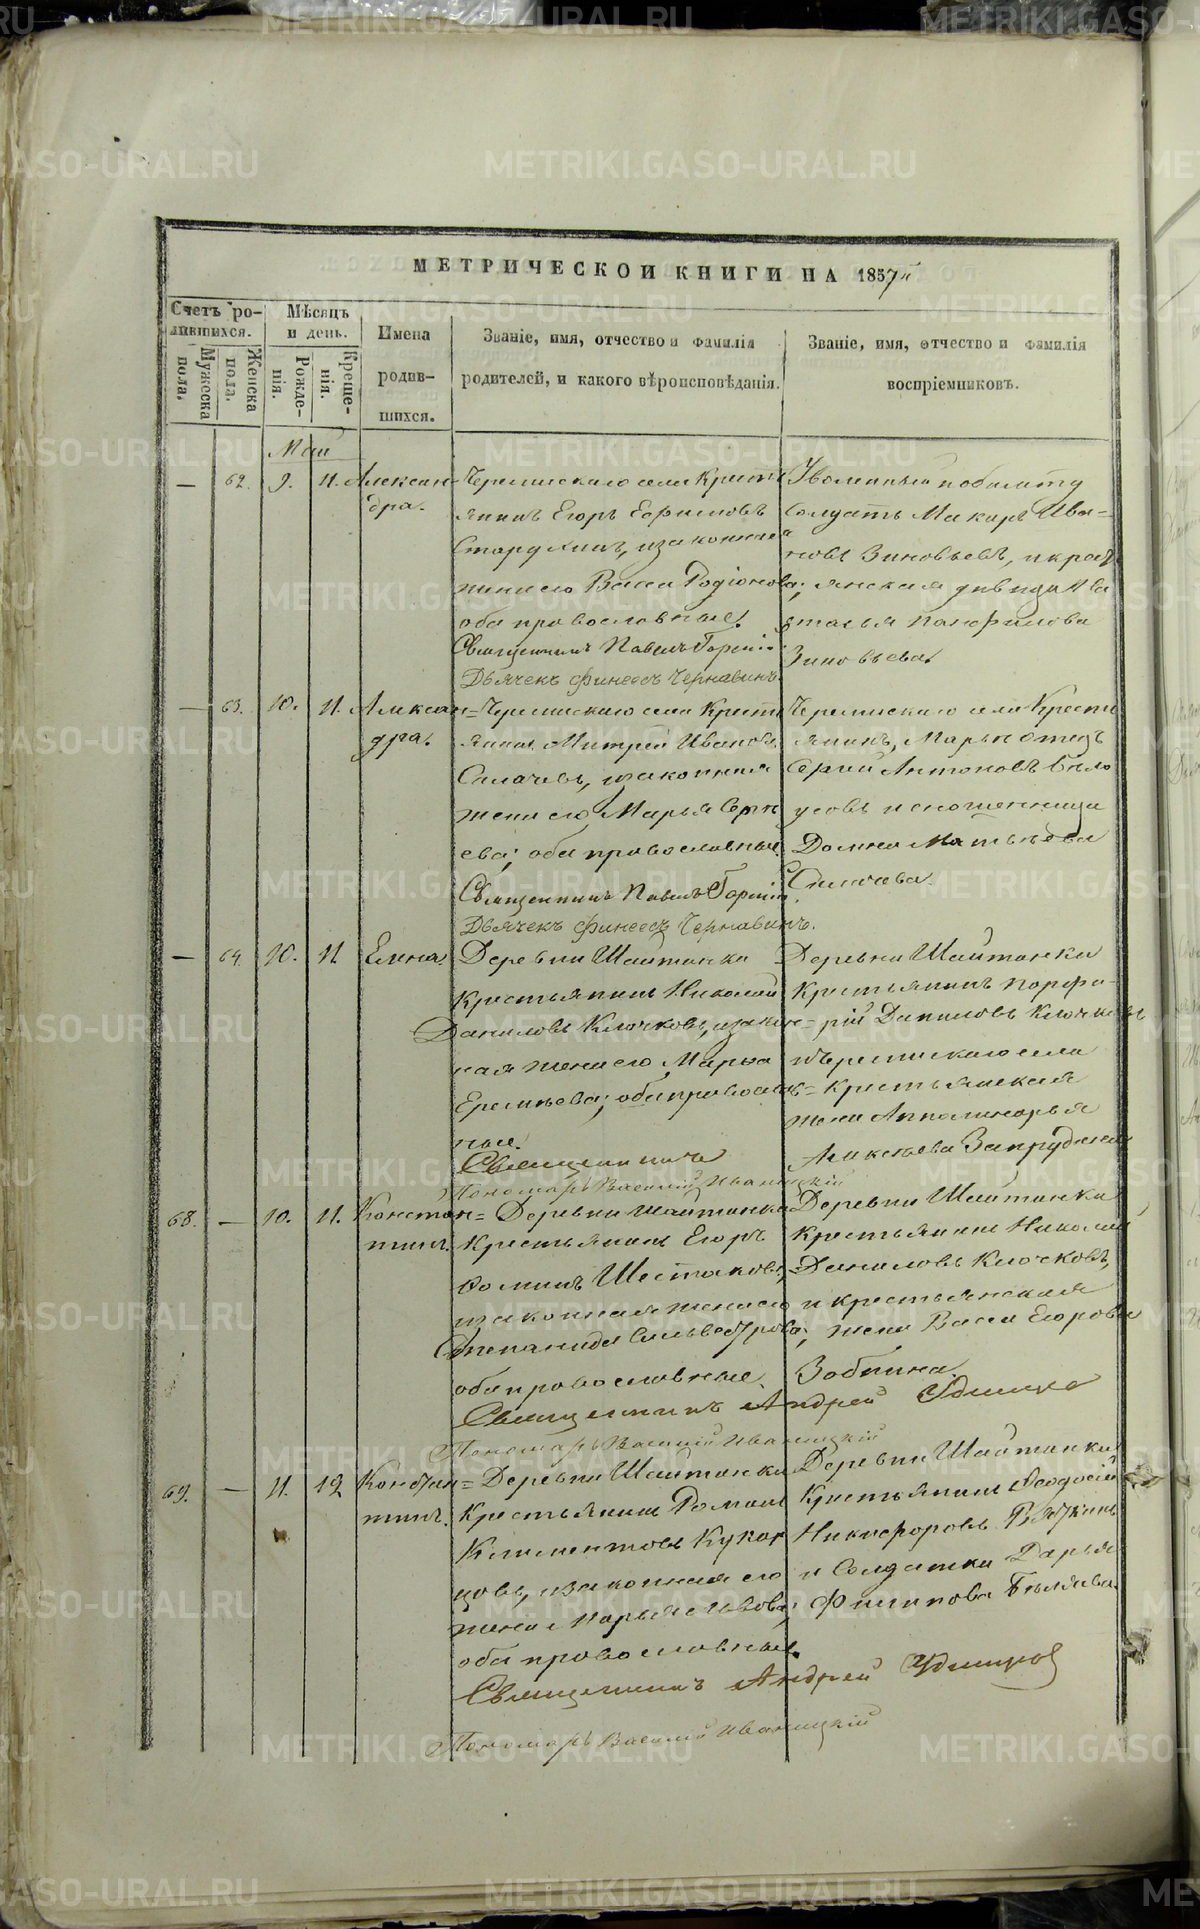 МЕТРИЧЕСКОЙ КНИГИ НА 1857й
Счетъ ро-
дившихся.
Мужеска пола.
Женска пола.
Мѣсяцъ
и день.
Рожде-
нія.
Креще-
нія.
Имена
родив-
шихся.
Званіе, имя, отчество и фамилія
родителей, и какого вѣроисповѣданія.
Званіе, имя, отчество и фамилія
воспріемниковъ.
Май
— 62. 9. 11. Алексан-
дра.
Черемискаго села Кресть
янинъ Егоръ Ефимовъ
изаконная
жена его Васса Родіонова;
оба православные.
Священникъ Павелъ Горскій
Дьячекъ Финеесъ Чернавинъ.
Уволенный побилету
Солдатъ Макаръ Ива-
новъ Зиновьевъ, и крес
янская дѣвица Ев
Панфилова
Зиновьева.
— 63. 10. 11. Алексан=
дра.
Черемискаго села Кресть
янинъ Митрей Ивановъ
изаконная
жена его Марья Серге
ева; оба православные.
Священникъ Павелъ Горскій.
Дьячекъ Финеесъ Чернавинъ.
Черемискаго села Кресть
янинъ,
Сергий Антоновъ Бѣло
усовъ
Домна Матвѣева
— 64. 10. 11. Елена.
Деревни Шайтанки
Крестьянинъ Николай
Даниловъ Клочковъ, изакон=
ная жена его Марья
Еремѣева; оба православ=
ные.
Священникъ
Пономарь Василій Иваницкій
Деревни Шайтанки
Крестьянинъ Порфи-
рій Даниловъ Клочковъ
и Черемискаго села
Крестьянская
жена Апполинарья
Алексѣева Запрудина
68. — 10. 11. Констан=
тинъ.
Деревни Шайтанки
Крестьянинъ Егоръ
Фоминъ Шестаковъ,
изаконная жена его
Степанида Сильвестрова;
оба православные.
Священникъ Андрей Удинцев
Пономарь Василій Иваницкій
Деревни Шайтанки
Крестьянинъ Николай
Даниловъ Клочковъ,
и крестьянская
жена Васса Егорова
Забнина.
69. — 11. 12 Констан=
тинъ.
Деревни Шайтанки
Крестьянинъ Романъ
Климентовъ Кукар
цовъ, изаконная его
жена Марья Львова;
оба православные.
Священникъ Андрей Удинцов
Пономарь Василій Иваницкій
Деревни Шайтанки
Крестьянинъ Феодосій
Никифоровъ Вяткинъ
и Солдатка Дарья
Филипова Бѣляева.
METRIKI.GASO-URAL.RU